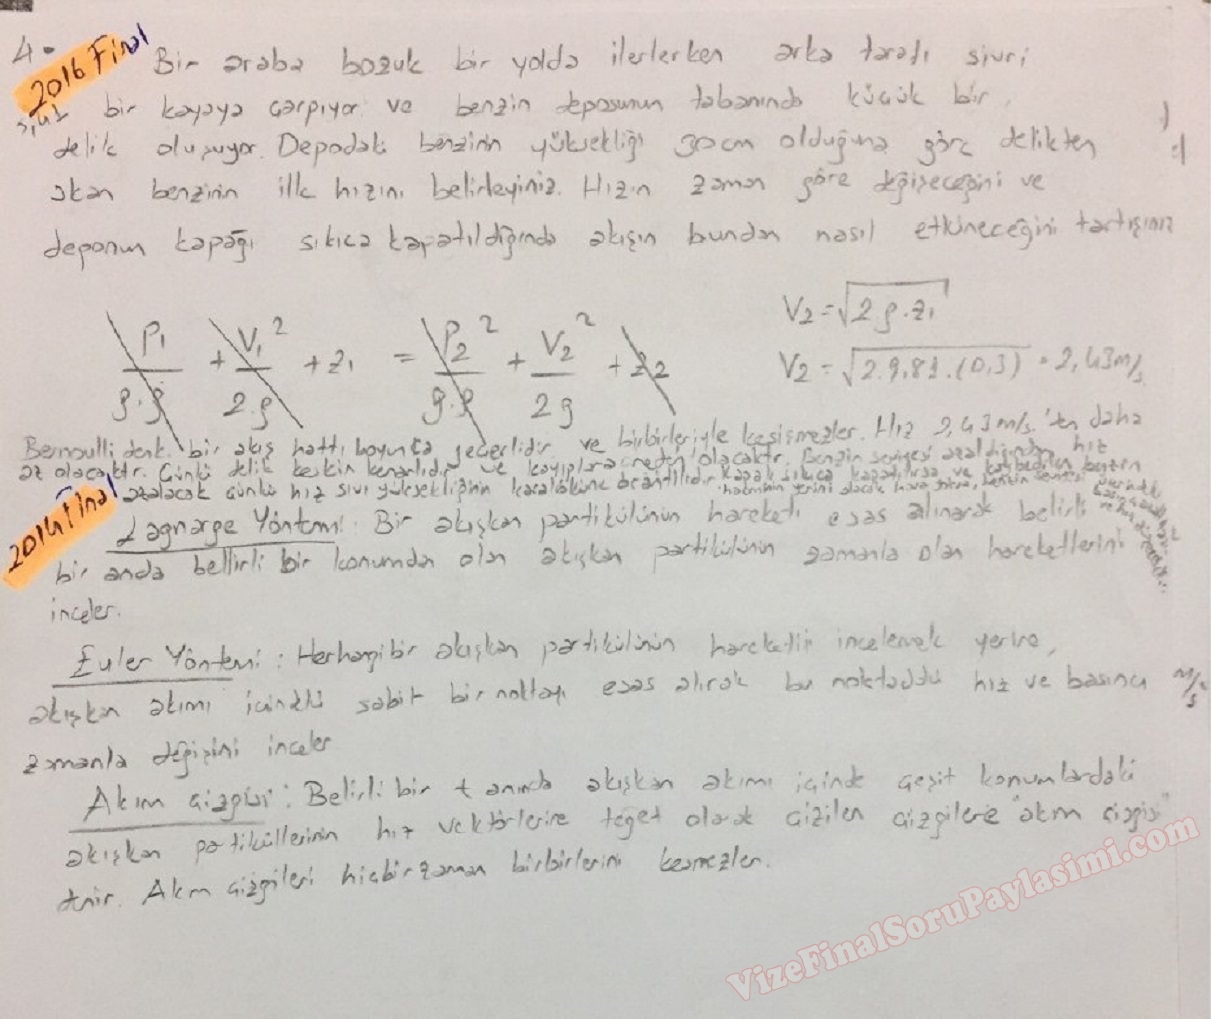 4.
2016 Final
Bir araba bozuk bir yolda ilerlerken arka tarafı sivri
bir kayaya çarpıyor ve benzin deposunun tabanında küçük bir
delik oluşuyor. Depodaki benzinin yüksekliği 30cm olduğuna göre delikten
akan benzinin ilk hızını belirleyiniz. Hızın zaman göre değişeceğini ve
deponun kapağı sıkıca kapatıldığında akışın bundan nasıl etkineceğini tartışınız
P₁/g.ρ + V₁²/2.g + z₁ = P₂²/g.ρ + V₂²/2g + z₂
V₂ = √2g.z₁
V₂ = √2.9,81.(0,3) = 2,43m/s
Bernoulli denk. bir akış hattı boyunca geçerlidir ve birbirleriyle kesişmezler. Hız 2,43m/s.'ten daha
az olacaktır. Çünkü delik keskin kenarlıdır ve kayıplara neden olacaktır. Benzin seviyesi azaldığından hız
azalacak çünkü hız sıvı yüksekliğinin karakökûne orantılıdır. Kapak sıkıca kapatılırsa ve kaybedilen benzin
hacminin yerini alacak hava yoksa, benzin seviyesi üzerindeki
2014 Final
Lagnarge Yöntemi: Bir akışkan partikülünün hareketi esas alınarak belirli
bir anda bellirli bir konumdan olan akışkan partikülünün zamanla olan hareketlerini
inceler.
Euler Yöntemi: Herhangibir akışkan partikülünün hareketini incelemek yerine,
akışkan akımı içindeki sabit bir noktayı esas alırak bu noktadaki hız ve basıncı m/s
zamanla değişini inceler
Akım Çizgisi: Belirli bir t anında akışkan akımı içinde çeşit konumlardaki
akışkan partiküllerinin hız vektörlerine teğet olarak çizilen çizgilere "akım çizgisi"
denir. Akım çizgileri hiçbir zaman birbirlerini kesmezler.
VizeFinalSoruPaylasimi.com